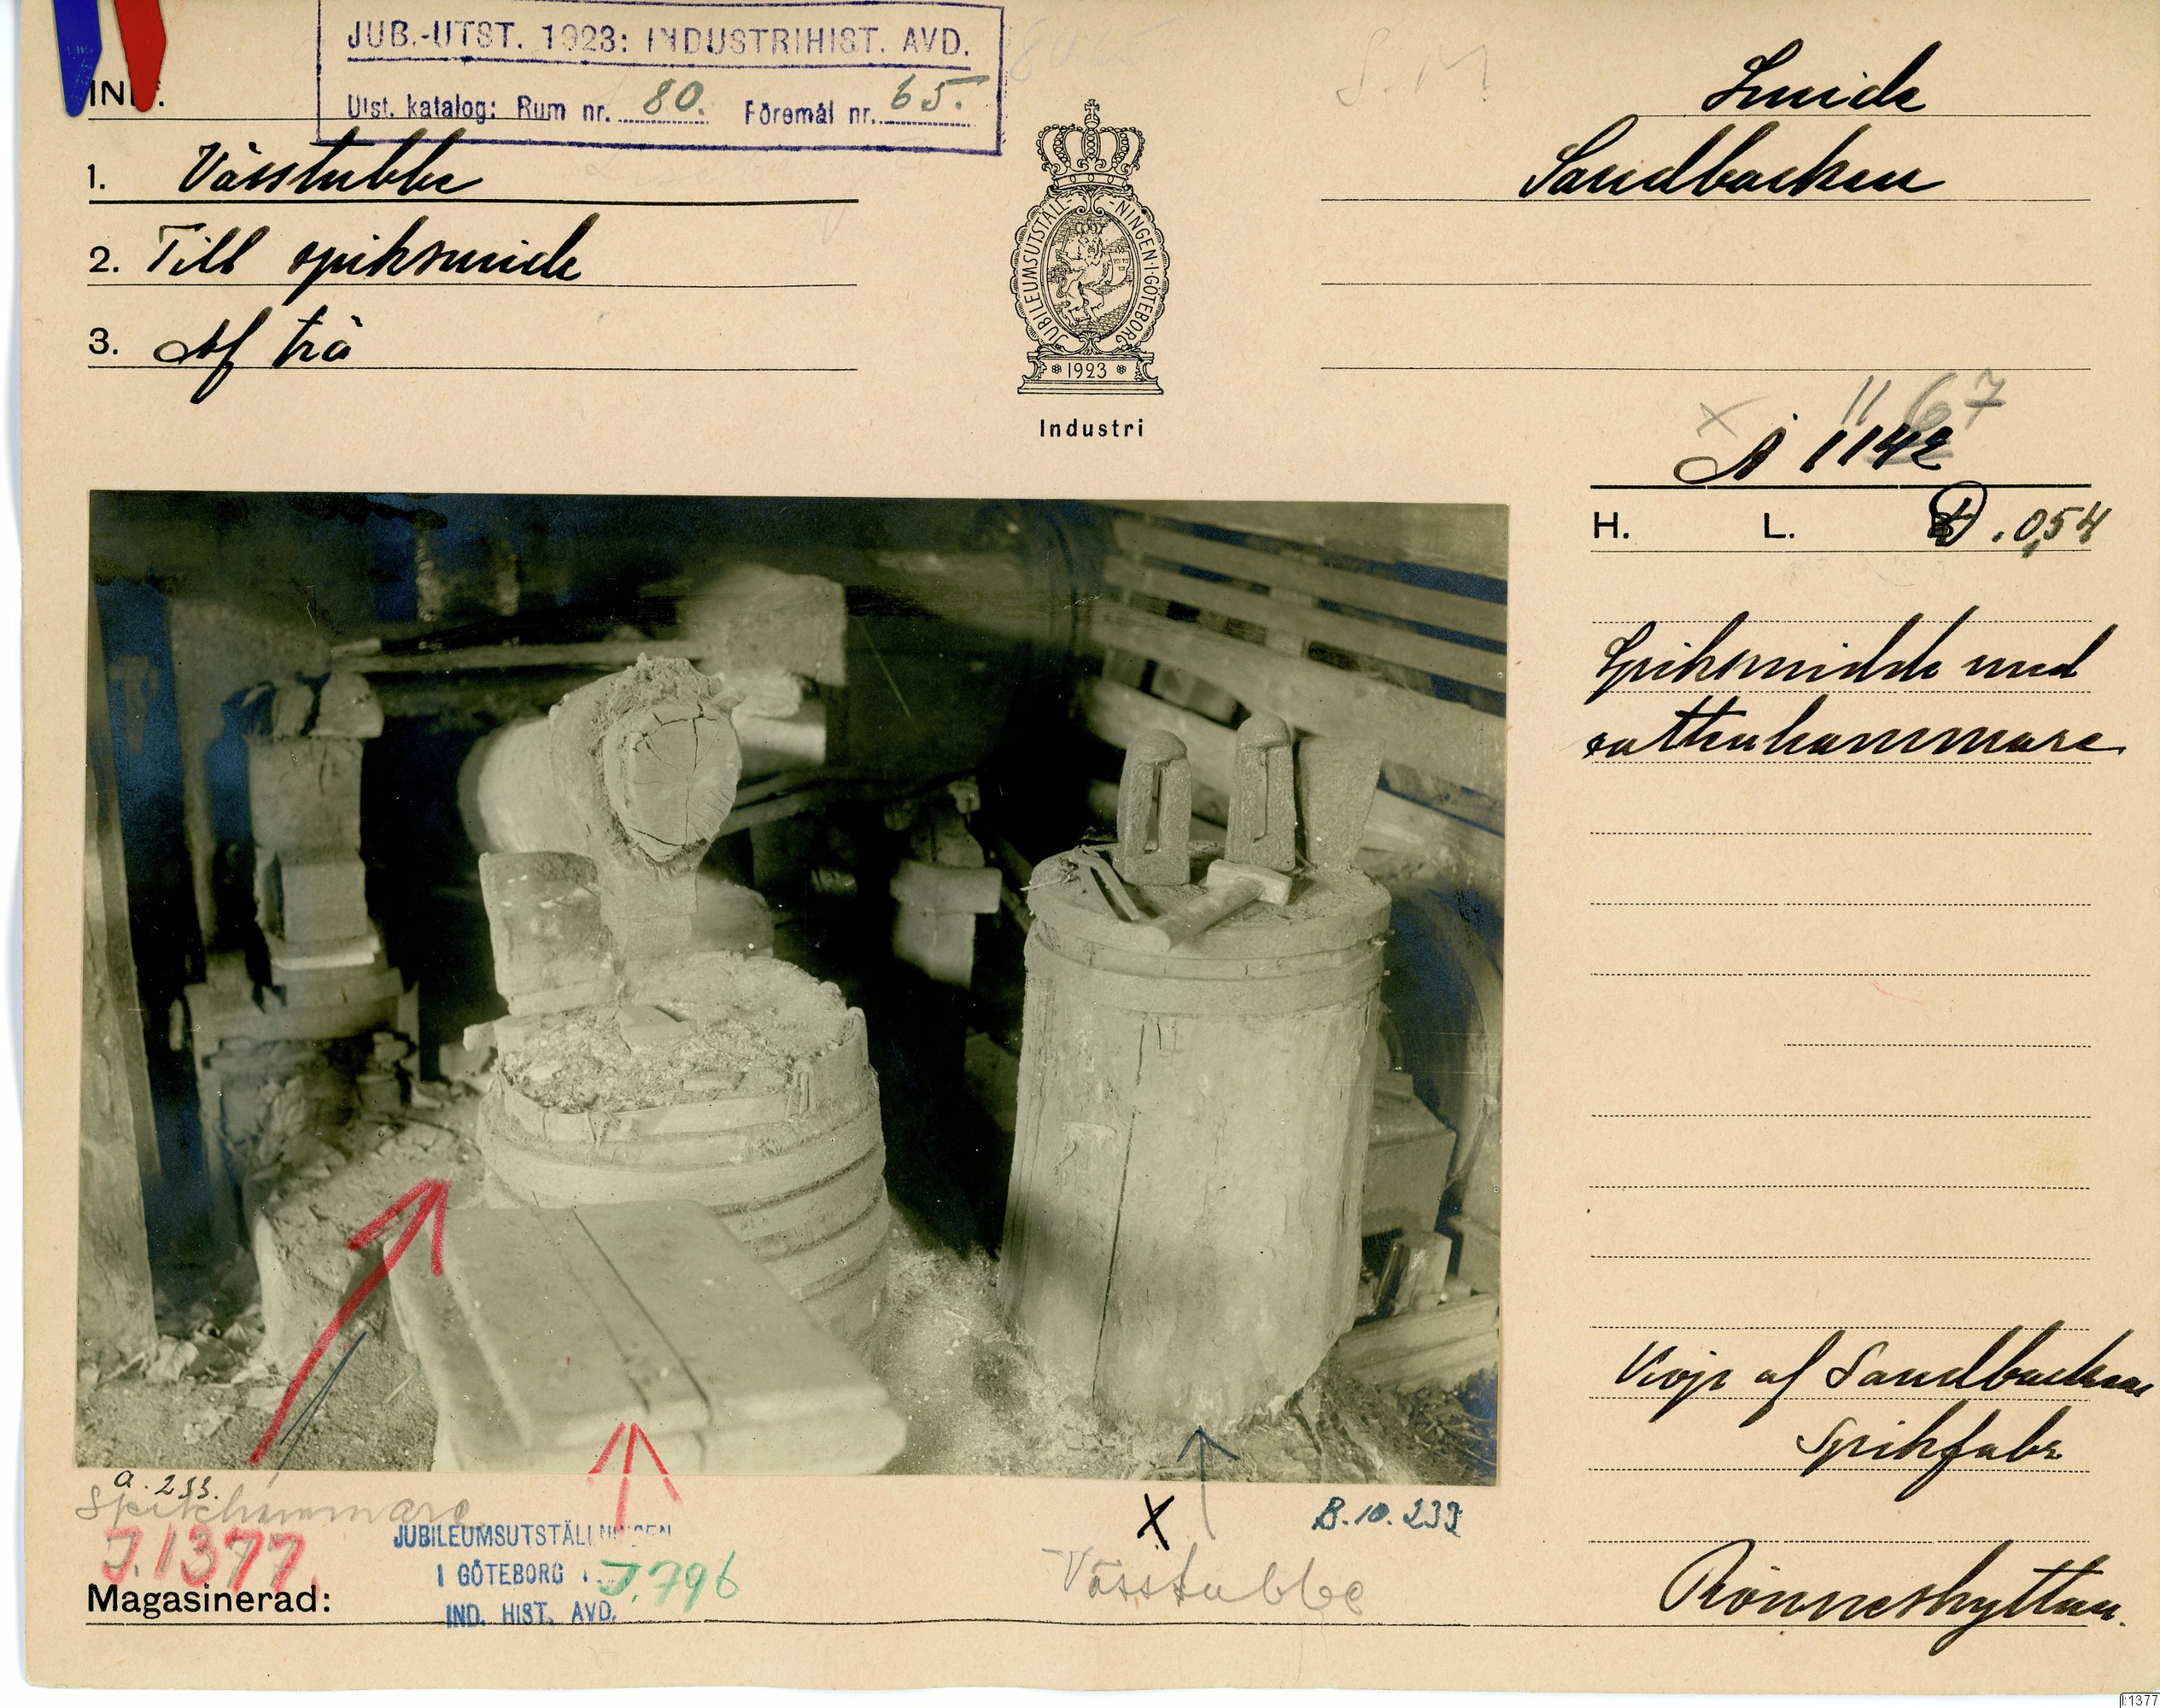 JUB.-UTST. 1923: INDUSTRIHIST. AVD.
Utst. katalog: Rum nr. 80. Föremål nr. 65.
S. M
Smide
Sandbacken
1. Vässtubbe
2. Till spiksmide
3. Af trä
JUBILEUMSUTSTÄLL-NINGEN·I·GÖTEBORG
1923
Industri
x 1167
A 1142
H. L. D. 0,54
Spiksmidde med
vattenhammare
Köpt af Sandbackens
Spikfabr
Rönneshyttan.
a. 233.
Spikhammare
J. 1377.
JUBILEUMSUTSTÄLLNINGEN
I GÖTEBORG
IND. HIST. AVD.
J. 796
X
B. 10. 233
Vässtubbe
Magasinerad:
I:1377